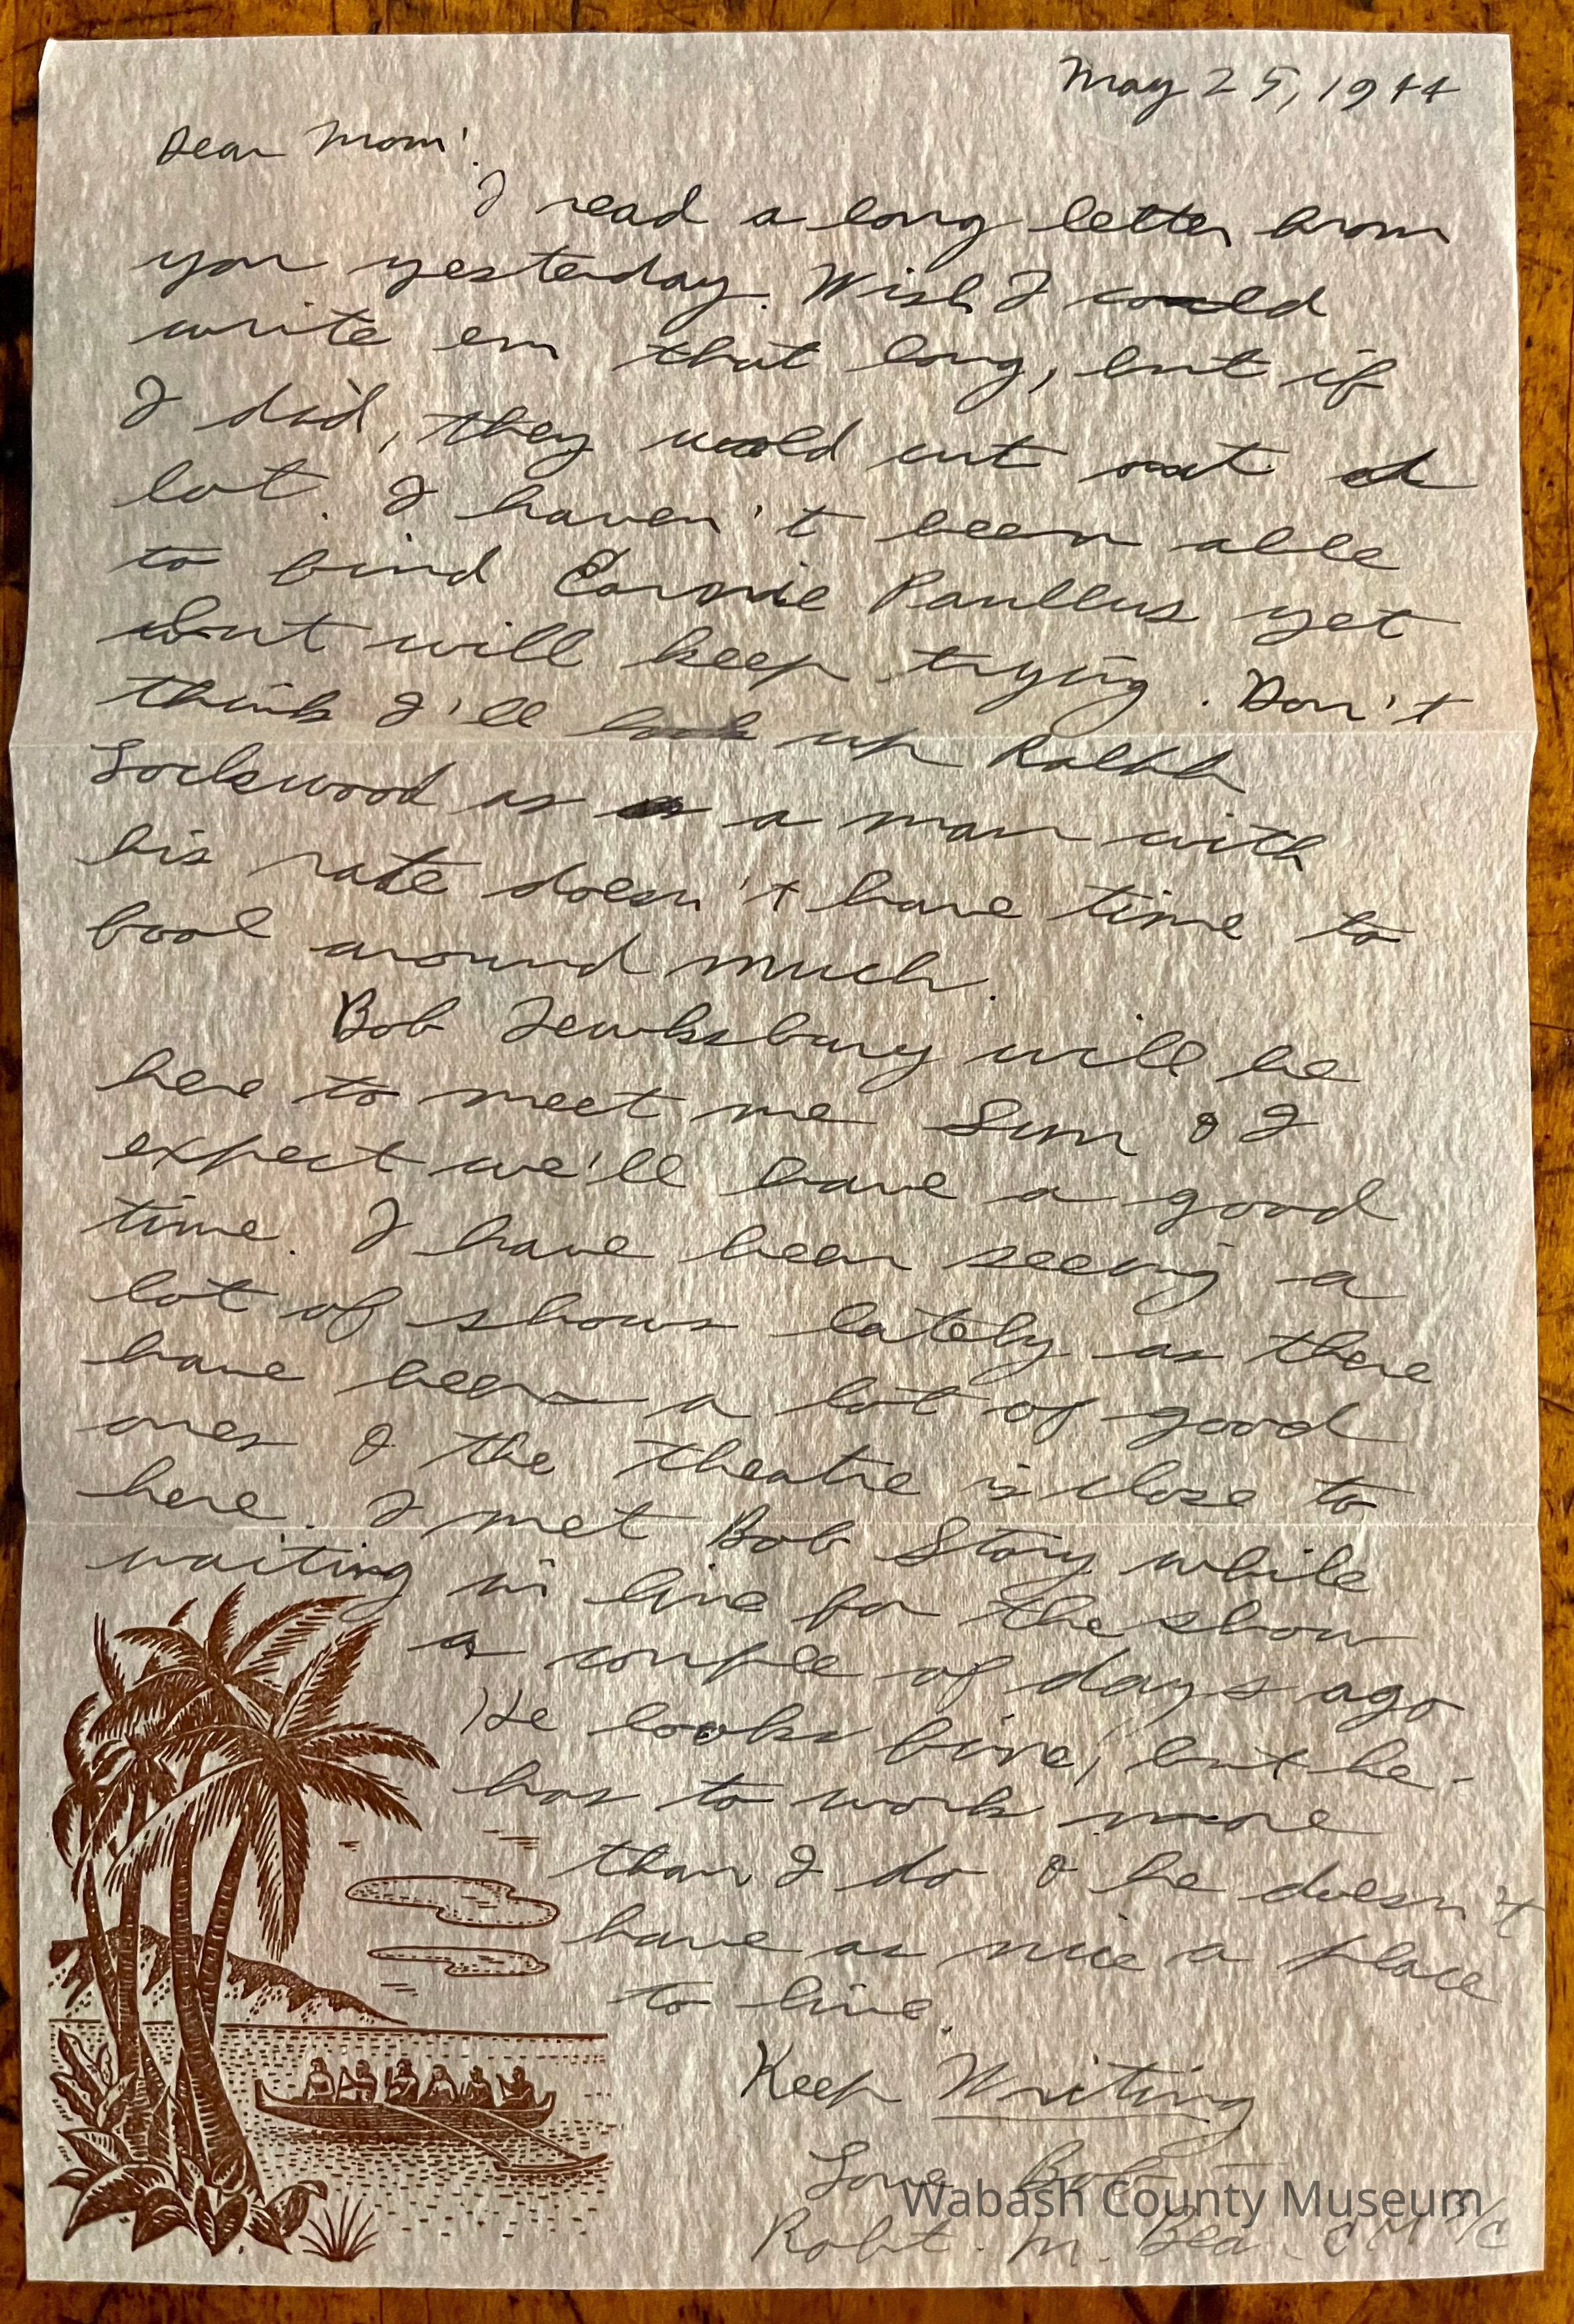 May 25, 1944
Dear Mom:
I read a long letter from
you yesterday. Wish I could
write em that long, but if
I did, they would cut out a
lot. I haven't been able
to find Paullus yet
but will keep trying. Don't
think I'll look up Ralph
Lockwood as a man with
his rate doesn't have time to
fool around much.
Bob Tewksbury will be
here to meet me Sun & I
expect we'll have a good
time. I have been seeing a
lot of shows lately as there
have been a lot of good
ones & the theatre is close to
here. I met Bob Story while
waiting in line for the show
a couple of days ago
He looks fine, but he
has to work more
than I do & he doesn't
have as nice a place
to live.
Keep Writing
Love Bob
Robt. M. CM
Wabash County Museum